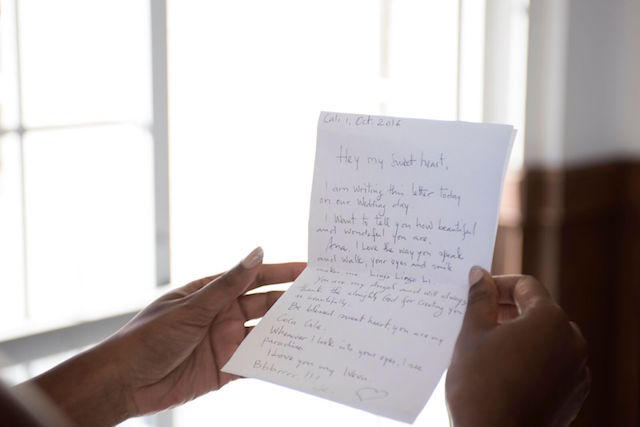 Cali 1, Oct. 2016
Hey my sweet heart,
I am writing this letter today
on our Wedding day.
I Want to tell you how beautiful
and wonderful you are.
Ana, I Love the way you speak
and walk, your eyes and smile
make me
You are my Angel and will always
thank the almighty God for creating you
so beautifully.
Be blessed sweet heart, you are my
Whenever I look into your eyes, I see
paradise.
I Love you my